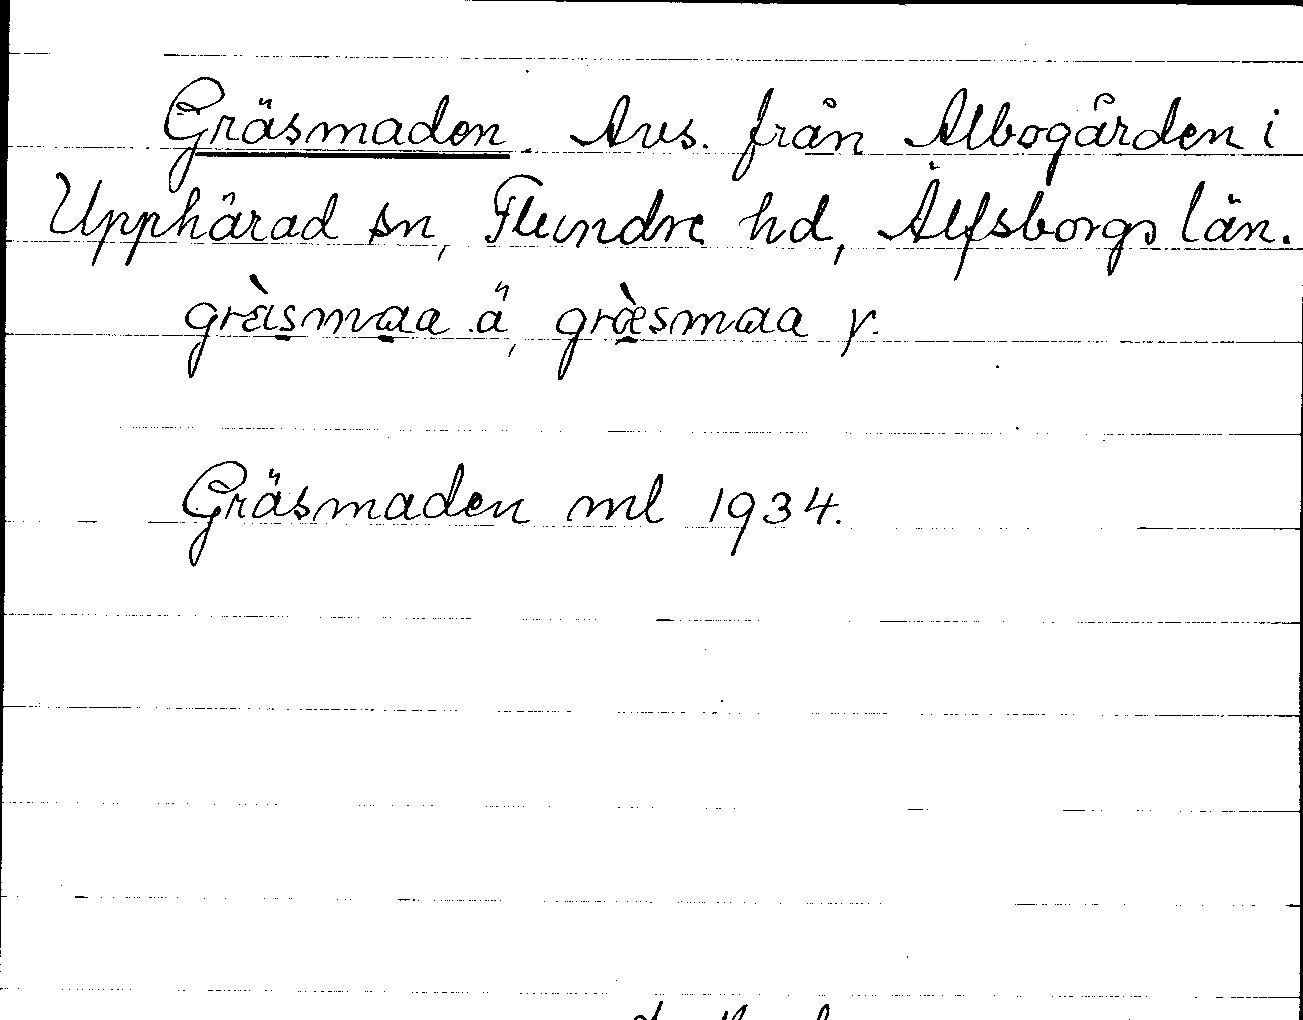 Gräsmaden. Avs. från Albogården i
Upphärad sn, Flundre hd, Älfsborgs län.
gräsmaa ä, græsmaa y.
Gräsmaden ml 1934.